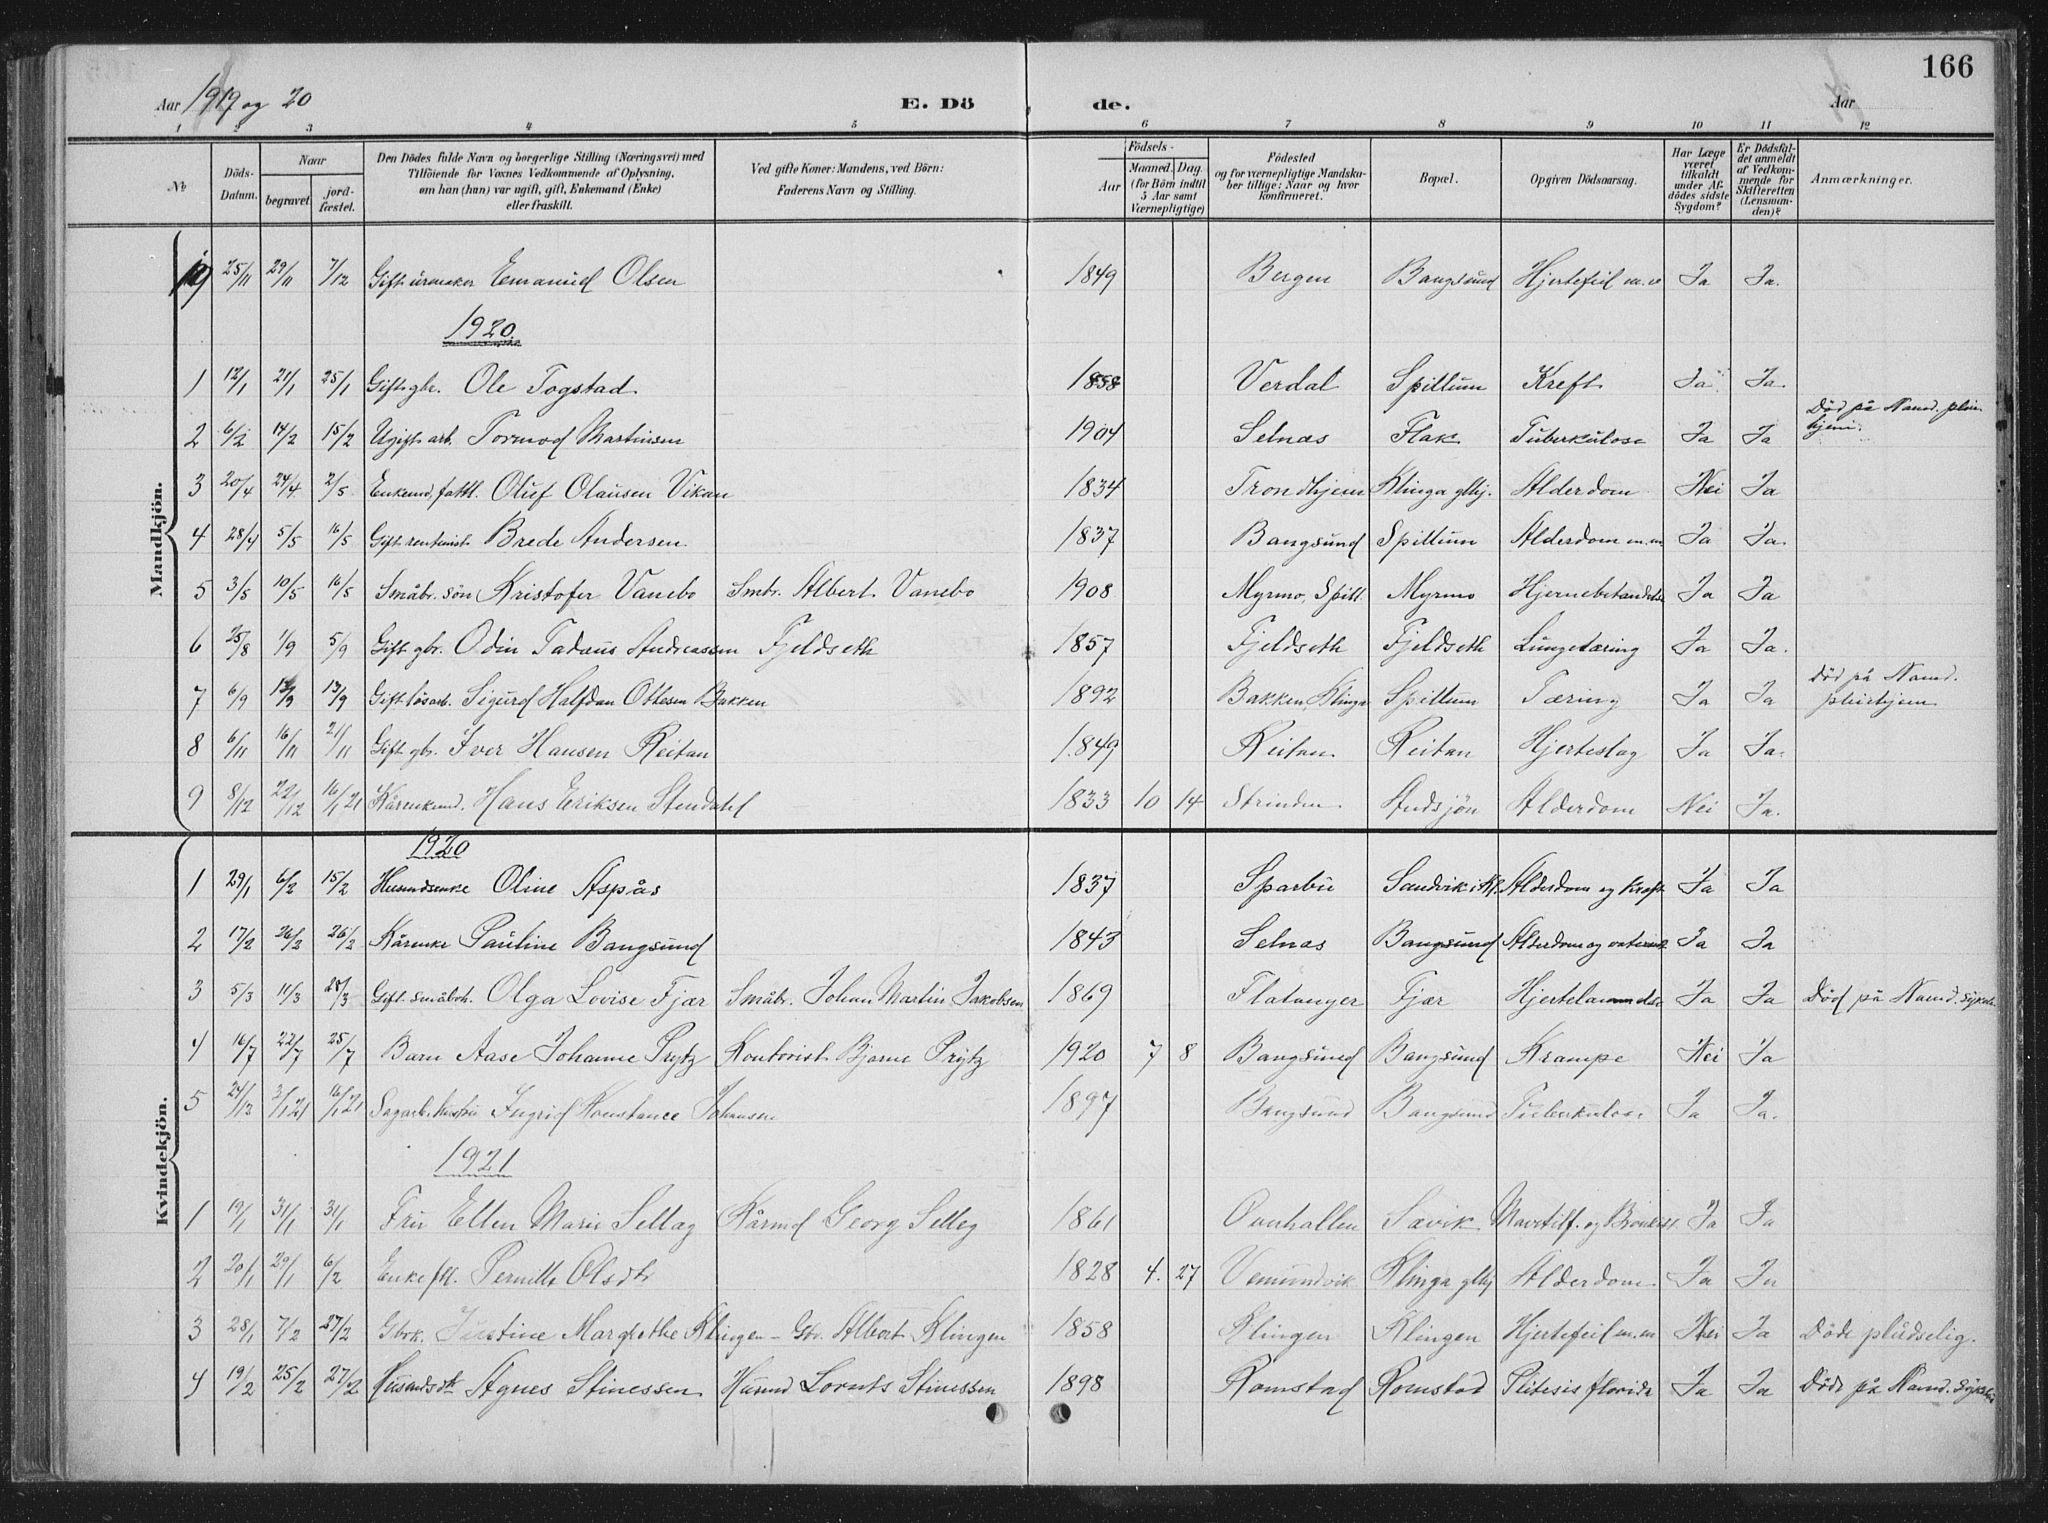 166
Aar 1919 og 20 E. Dö de. Aar
1 2 3 4 5 6 7 8 9 10 11 12
№ Döds-Datum. Naar begravet jord-fæstet. Den Dödes fulde Navn og borgerlige Stilling (Næringsvei) med Tilföiende for Voxnes Vedkommende af Oplysning, om han (hun) var ugift, gift, Enkemand (Enke) eller fraskilt. Ved gifte Koner: Mandens, ved Börn: Faderens Navn og Stilling. Födsels- Aar Maaned. Dag. (for Börn indtil 5 Aar samt Værnepligtige) Födested og for værnepligtige Mandskaber tillige: Naar og hvor konfirmeret. Bopæl. Opgiven Dödsaarsag. Har Læge været tilkaldt under Afdödes sidste Sygdom? Er Dödsfaldet anmeldt af Vedkommende for Skifteretten (Lensmanden)? Anmærkninger.
Mandkjön.
19 25/11 29/11 7/12 Gift urmaker Emanuel Olsen 1849 Bergen Bangsund Hjertefeil m.v Ja Ja.
1920.
1 12/1 21/1 25/1 Gift gbr. Ole Togstad 1858 Verdal Spillum Kreft Ja Ja.
Död på Namd. pleie-
2 6/2 14/2 15/2 Ugift arb. Tormod Martinsen 1904 Selnæs Flak Tuberkulose Ja Ja hjem.
3 20/4 24/4 2/5 Enkemd, fattl. Oluf Olausen Vikan 1834 Trondhjem Klinga glhj. Alderdom Nei Ja
4 28/4 5/5 16/5 Gift rentenist Brede Andersen 1837 Bangsund Spillum Alderdom m.m Ja Ja.
5 3/5 10/5 16/5 Småbr. sön Kristofer Vanebo Smbr. Albert Vanebo 1908 Myrmo, Spill. Myrmo Hjernebetændelse Ja Ja
6 25/8 1/9 5/9 Gift gbr. Odin Tadæus Andreassen Fjeldseth 1857 Fjeldseth Fjeldseth Lungetæring Ja Ja.
Död på Namd.
7 6/9 13/9 13/9 Gift lösarb. Sigurd Halfdan Ottesen Bakken 1892 Bakken, Klinga Spillum Tæring Ja Ja pleiehjem
8 6/11 16/11 21/11 Gift gbr. Iver Hansen Reitan 1849 Reitan Reitan Hjerteslag Ja Ja.
9 8/12 22/12 16/1 21 Kårenkemd. Hans Eriksen Stendahl 1833 10 14 Strinden Audsjön Alderdom Nei Ja.
Kvindekjön.
1920
1 29/1 6/2 15/2 Husmdsenke Oline Aspås 1837 Sparbu Sandvik i Kl. Alderdom og kræft Ja Ja
2 17/2 26/2 26/2 Kårenke Pauline Bangsund 1843 Selnæs Bangsund Alderdom og Ja Ja
3 5/3 11/3 28/3 Gift småbrk. Olga Lovise Fjær Småbr. Johan Martin Jakobsen 1869 Flatanger Fjær Hjertelammelse Ja Ja Död på Namd. sykeh.
4 16/7 22/7 25/7 Barn Aase Johanne Prytz Kontorist Bjarne Prytz 1920 7 8 Bangsund Bangsund Krampe Nei Ja
5 24/12 3/1 21 16/1 21 Sagarb. hustru Ingrid Konstance Johansen 1897 Bangsund Bangsund Tuberkulose Ja Ja.
1921
1 19/1 31/1 31/1 Fru Ellen Marie Selleg Kårmd Georg Selleg 1861 Overhallen Sævik Ja Ja
2 20/1 29/1 6/2 Enke ftl. Pernille Olsdtr 1828 4. 27 Vemundvik Klinga glhj Alderdom Ja Ja
3 28/1 7/2 27/2 Gbrk. Justine Margrethe Klingen - Gbr. Albert Klingen 1858 Klingen Klingen Hjertefeil m.m Nei Ja Döde pludselig.
4 19/2 25/2 27/2 Husmdsdtr Agnes Stinessen Husmd Lornts Stinessen 1898 Romstad Romstad Ptitesis florida Ja Ja Döde på Namd. sykehus